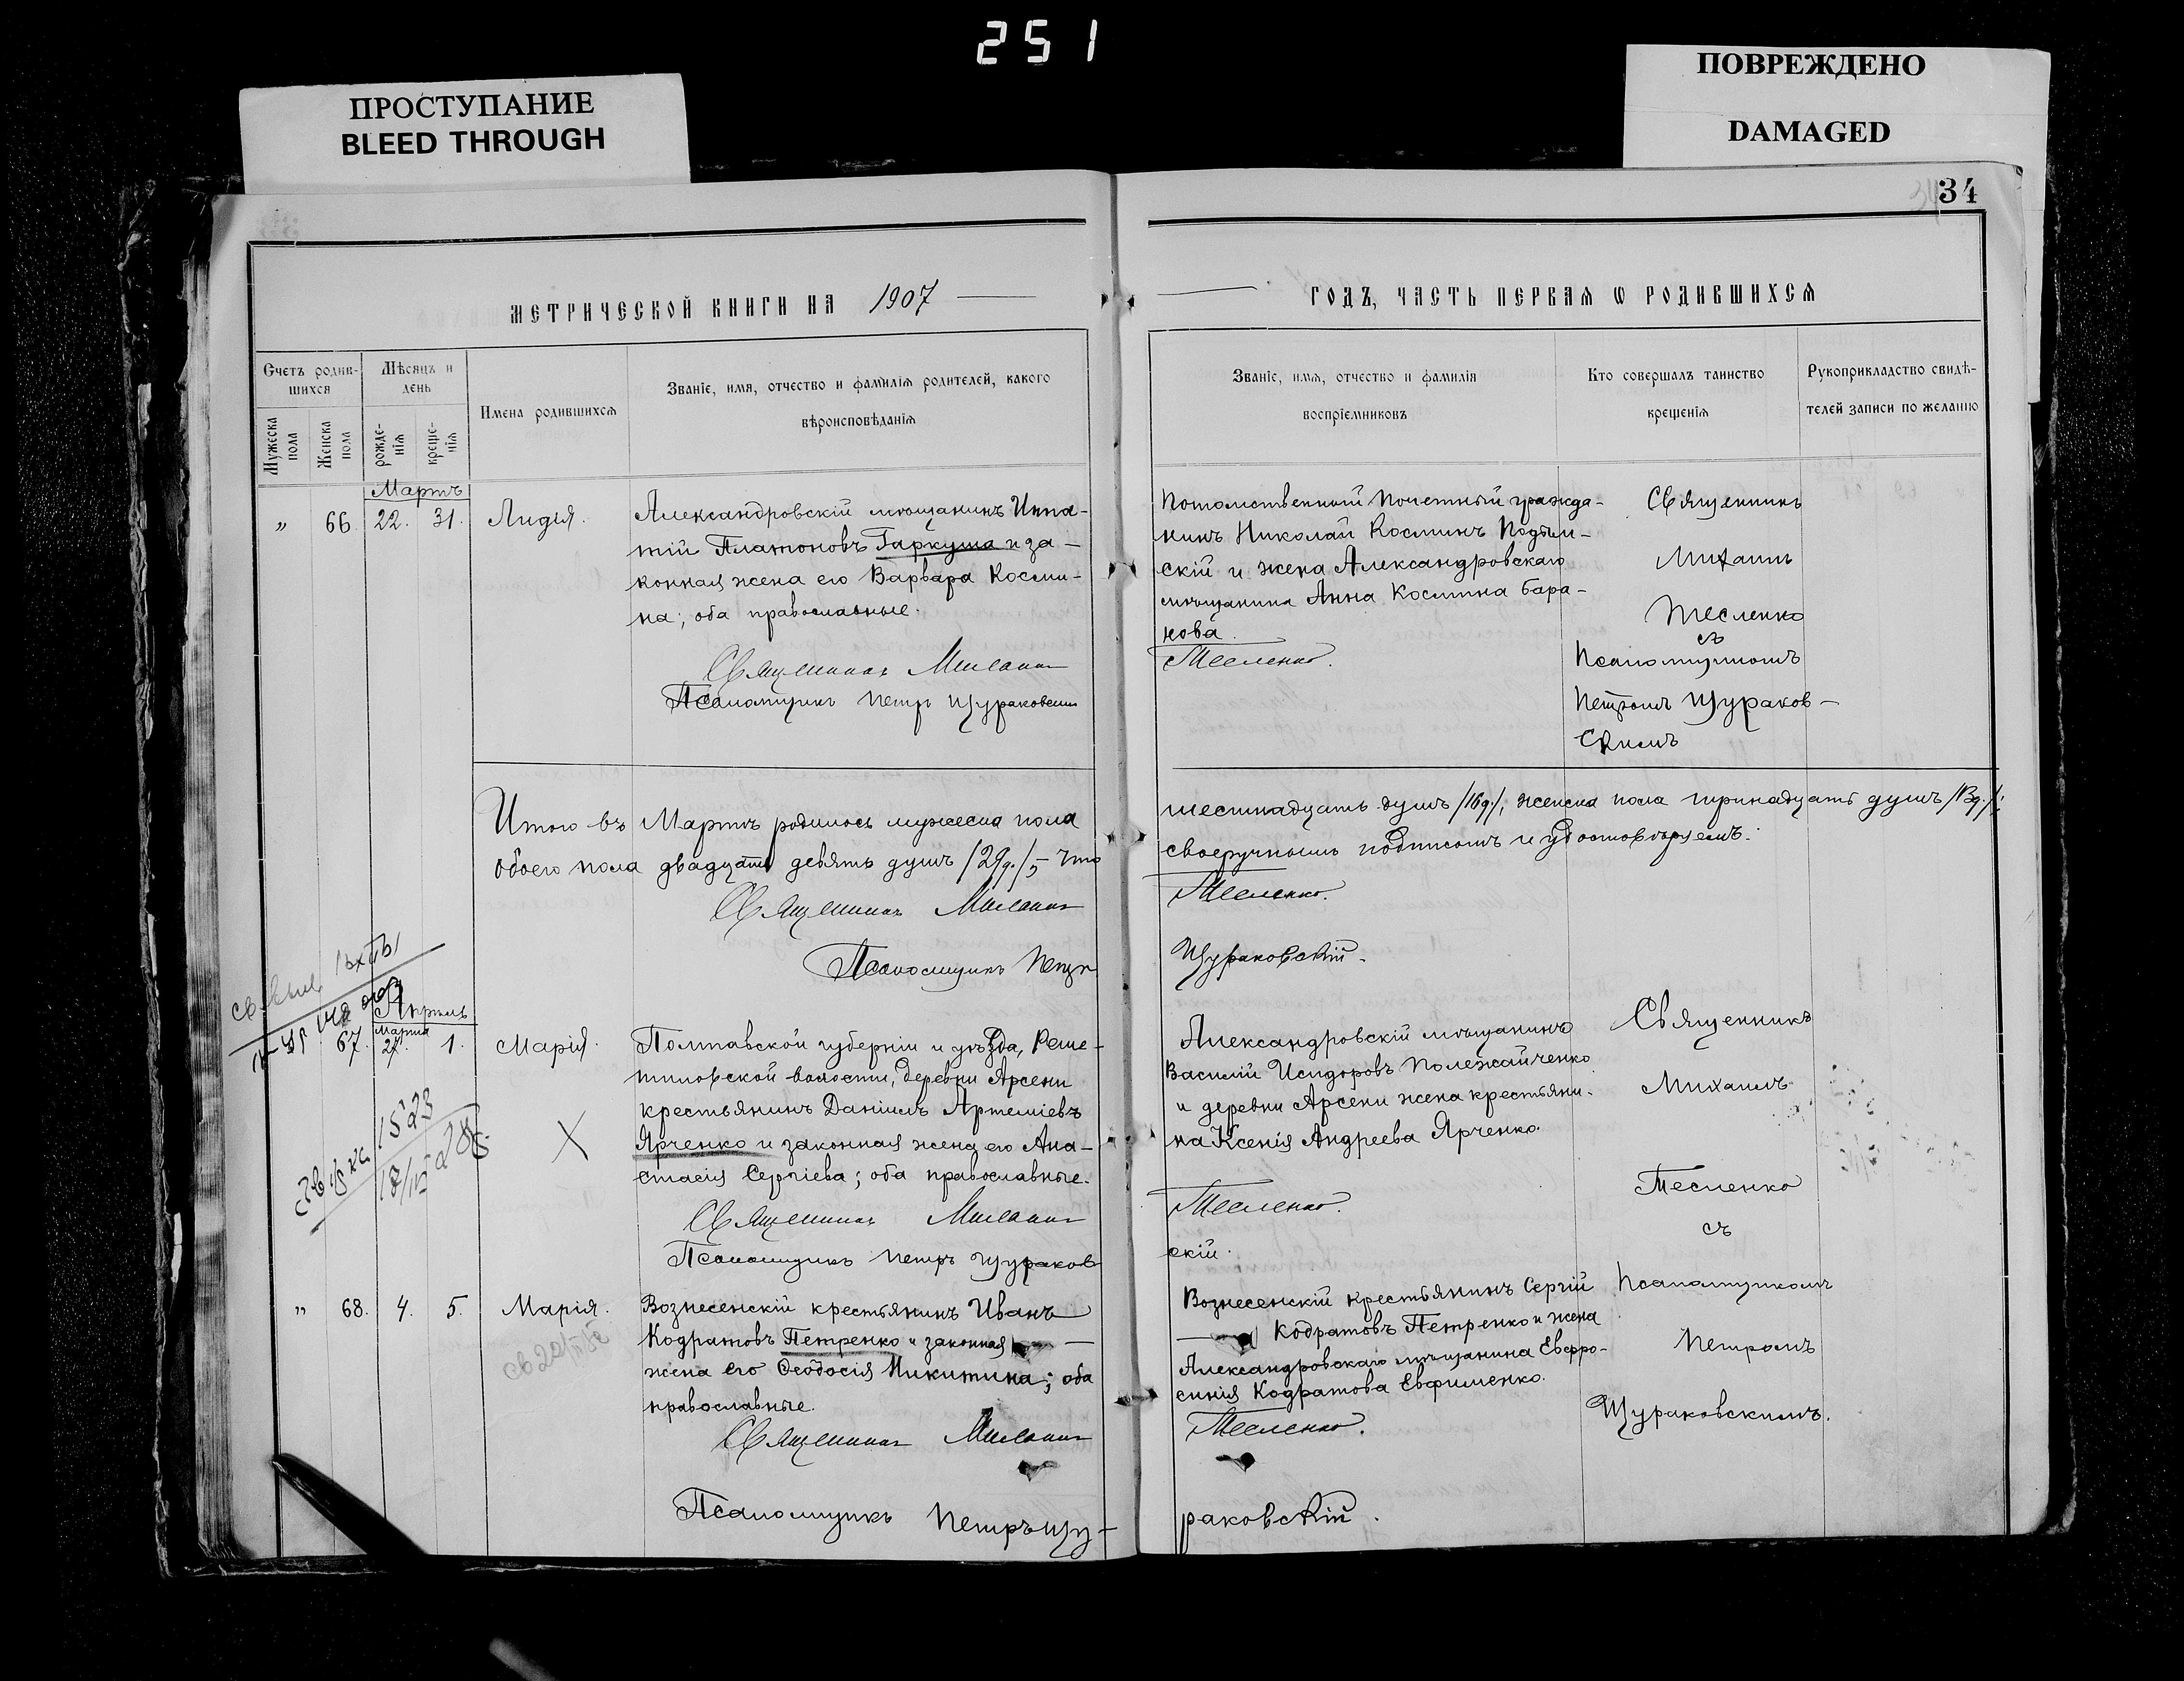 251
ПРОСТУПАНИЕ
BLEED THROUGH
ПОВРЕЖДЕНО
DAMAGED
34
МЕТРИЧЕСКОЙ КНИГИ НА 1907
ГОДЪ, ЧАСТЬ ПЕРВАЯ Ѡ РОДИВШИХСЯ
Счетъ родив-
шихся
Мужеска пола
Женска пола
Мѣсяцъ и
день
рожде-
нія
креще-
нія
Имена родившихся
Званіе, имя, отчество и фамилія родителей, какого
вѣроисповѣданія
Званіе, имя, отчество и фамилія
воспріемниковъ
Кто совершалъ таинство
крещенія
Рукоприкладство свидѣ-
телей записи по желанію
Мартъ
„ 66. 22. 31. Лидія.
Александровскій мѣщанинъ Ипа-
тій Платоновъ Гаркуша и за-
конная жена его Варвара Косми-
на; оба православные.
Священникъ Михаилъ
Псаломщикъ Петръ Щураковскій
Потомственный Почетный гражда-
нинъ Николай Косминъ
скій и жена Александровскаго
мѣщанина Анна Космина Бара-
нова.
Тесленко.
Священникъ
Михаилъ
Тесленко
съ
Псаломщикомъ
Петромъ Щураков-
скимъ
Итого въ Мартѣ родилось мужеска пола
обоего пола двадцать девять душъ /29д./ что
Священникъ Михаилъ
Псаломщикъ Петръ
шестнадцать душъ /16д./, женска пола тринадцать душъ /13д./;
своеручнымъ подписомъ и удостовѣряемъ.
Тесленко.
Щураковскій.
Апрѣль
Марта
67. 27. 1. Марія.
Полтавской губерніи и уѣзда, Реше-
тиловской волости, деревни Арсени
крестьянинъ Даніилъ Артеміевъ
Ярченко и законная жена его Ана-
стасія Сергіева; оба православные.
Священникъ Михаилъ
Псаломщикъ Петръ Щураков
Александровскій мѣщанинъ
Василій Исидоровъ Полежайченко
и деревни Арсени жена крестьяни-
на Ксенія Андреева Ярченко.
Тесленко.
скій.
Священникъ
Михаилъ
Тесленко
съ
Псаломщикомъ
Петромъ
Щураковскимъ.
1523
„ 68. 4. 5. Марія.
Вознесенскій крестьянинъ Иванъ
Кодратовъ Петренко и законная
жена его Ѳеодосія Никитина; оба
православные.
Священникъ Михаилъ
Псаломщикъ Петръ Щу-
Вознесенскій крестьянинъ Сергій
Кодратовъ Петренко и жена
Александровскаго мѣщанина Евфро-
синія Кодратова Евфименко.
Тесленко.
раковскій.